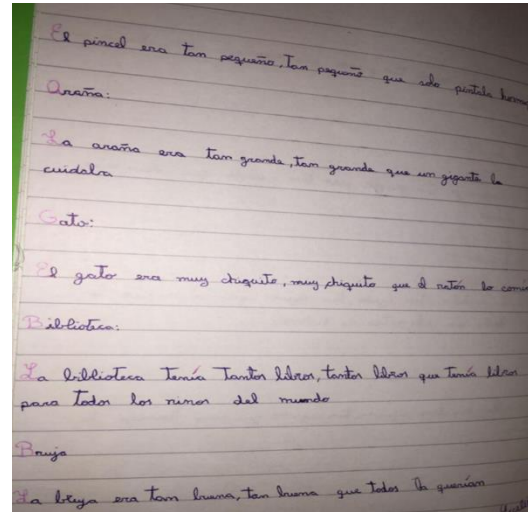 El pincel era tan pequeño, Tan pequeño que solo pintaba
Araña:
La araña era tan grande, tan grande que un gigante la
cuidaba
Gato:
El gato era muy chiquito, muy chiquito que el ratón lo
Biblioteca:
La biblioteca Tenía Tantos libros, tantos libros que Tenía libros
para Todos los ninos del mundo
Bruja
La bruja era tan buena, tan buena que Todos la querían